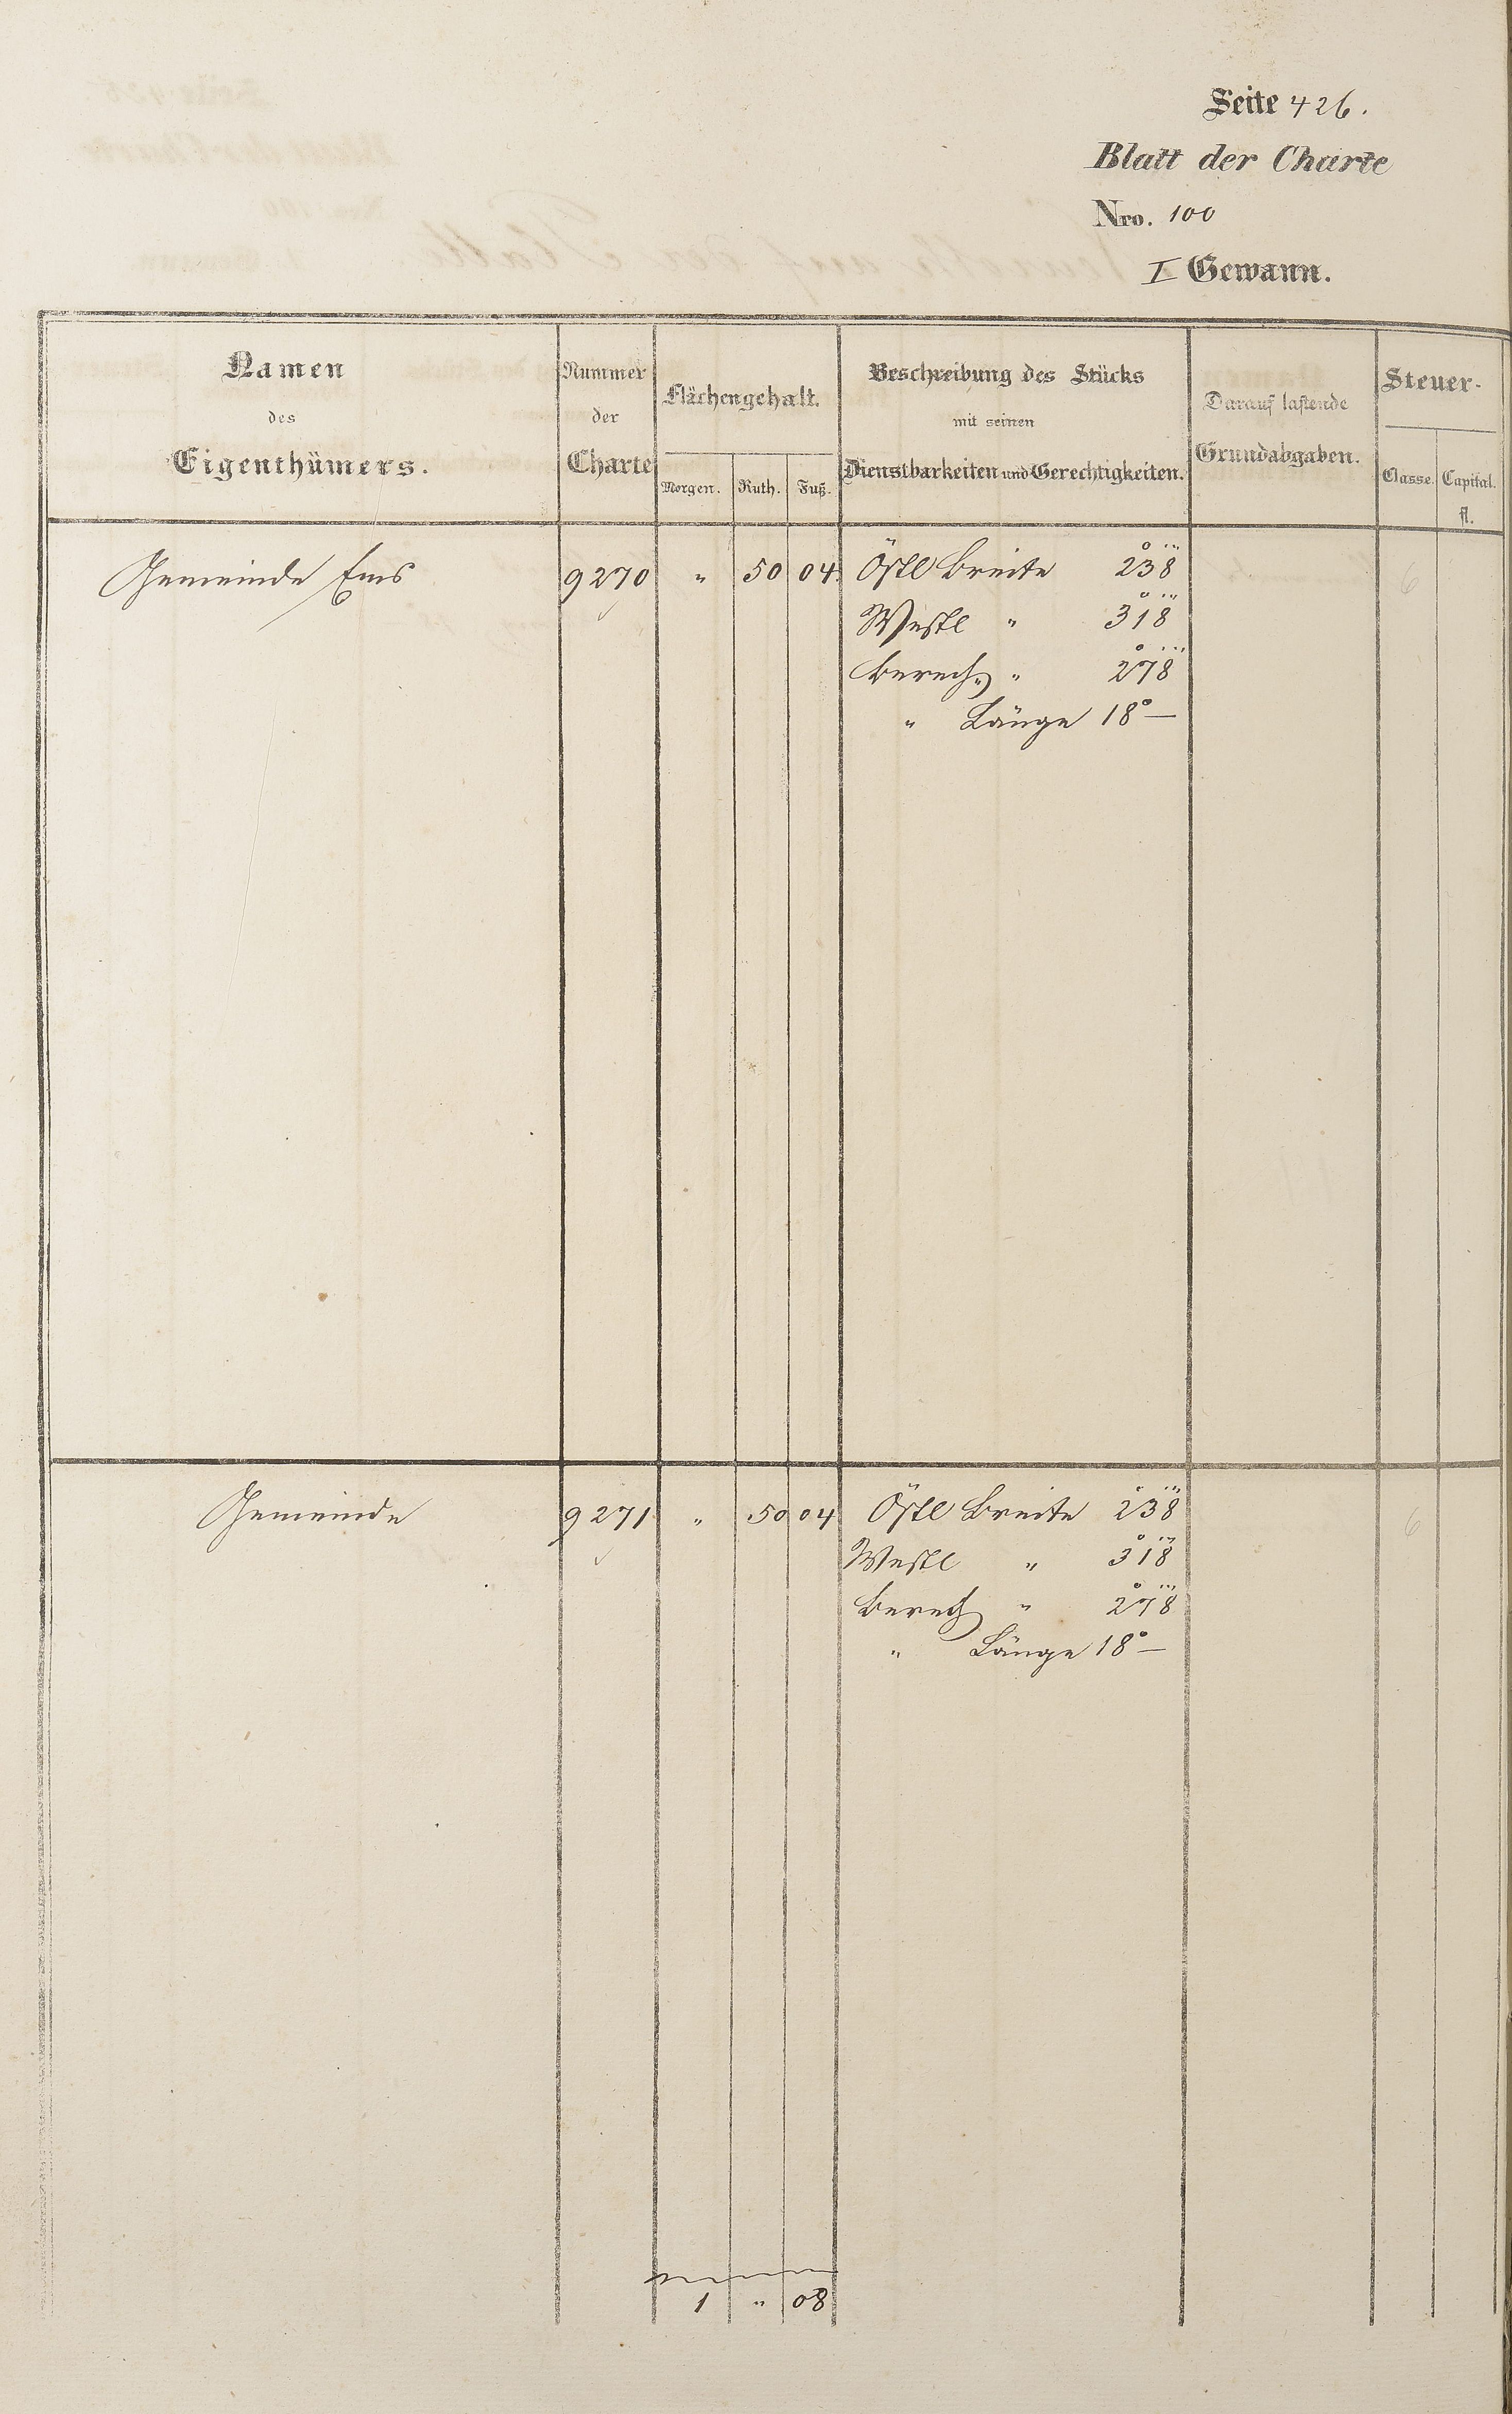 Seite 426.
Blatt der Charte
Nro. 100
I Gewann.
Namen
des
Eigenthümers.
Nummer
der
Charte
Flächengehalt.
Morgen. Ruth. Fuß.
Beschreibung des Stücks
mit seinen
Dienstbarkeiten und Gerechtigkeiten.
Darauf lastende
Grundabgaben.
Steuer-
Classe. Capital.
fl.
Gemeinde Ems 9270 " 50 04 Östl Breite 2°38''' 6
Westl " 3°18'''
Berech. " 2°78'''
" Länge 18° —
Gemeinde 9271 " 50 04 Östl Breite 2°38''' 6
Westl " 3°18'''
Berech " 2°78'''
" Länge 18° —
1 " 08